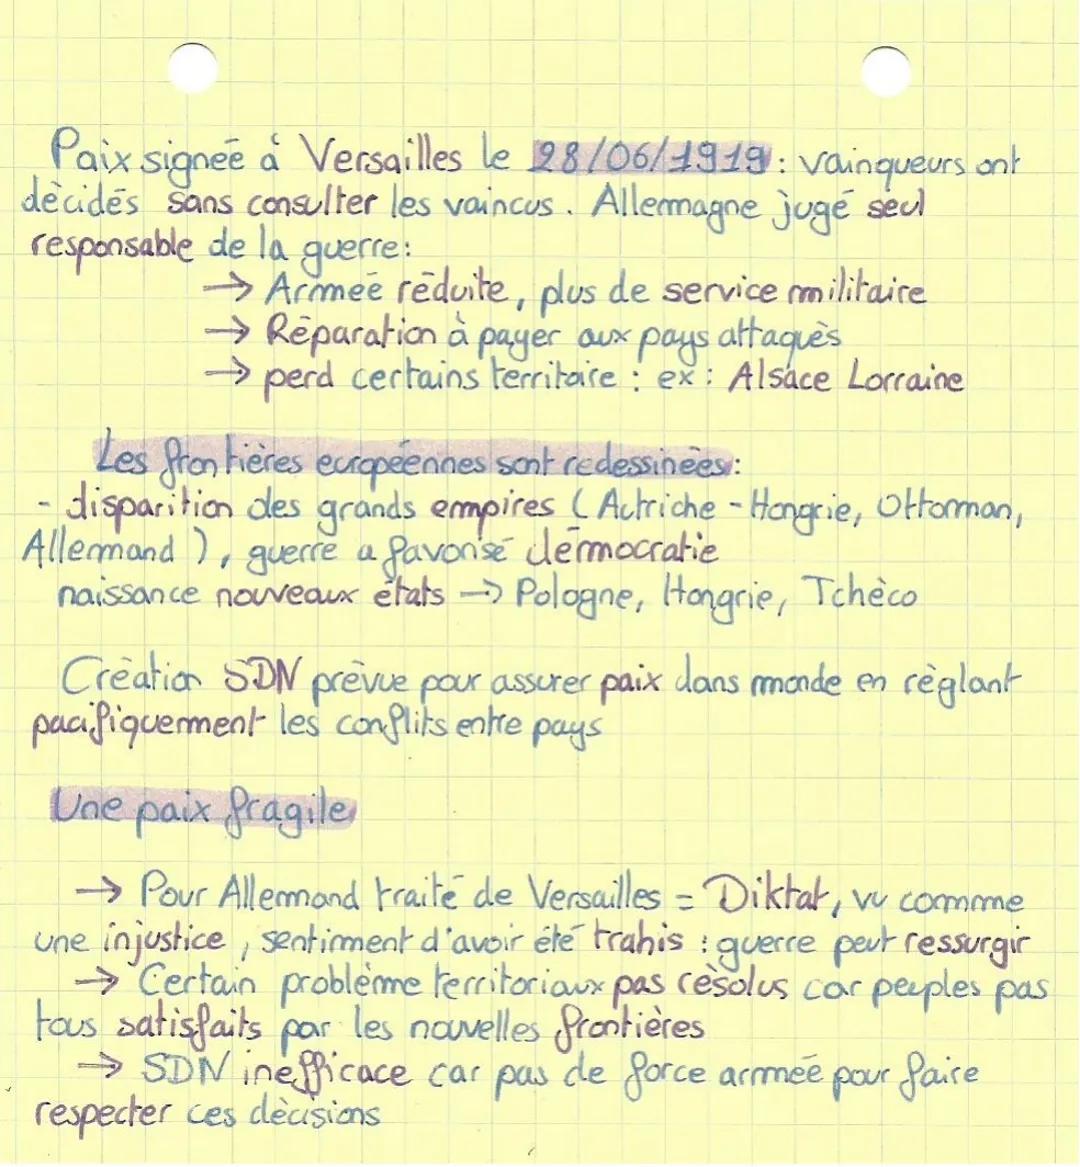 Paix signée à Versailles le 28/06/1919 : vainqueurs ont
décidés sans consulter les vaincus. Allemagne jugé seul
responsable de la guerre:
→ Armée réduite, plus de service militaire
→ Réparation à payer aux pays attaqués
→ perd certains territoire : ex : Alsace Lorraine
Les frontières européennes sont redessinées:
- disparition des grands empires (Autriche - Hongrie, Ottoman,
Allemand), guerre a favorisé démocratie
naissance nouveaux états → Pologne, Hongrie, Tchéco
Création SDN prévue pour assurer paix dans monde en réglant
pacifiquement les conflits entre pays
Une paix fragile
→ Pour Allemand traité de Versailles = Diktat, vu comme
une injustice, sentiment d'avoir été trahis : guerre peut ressurgir
→ Certain problème territoriaux pas résolus car peuples pas
tous satisfaits par les nouvelles frontières
→ SDN inefficace car pas de force armée pour faire
respecter ces décisions